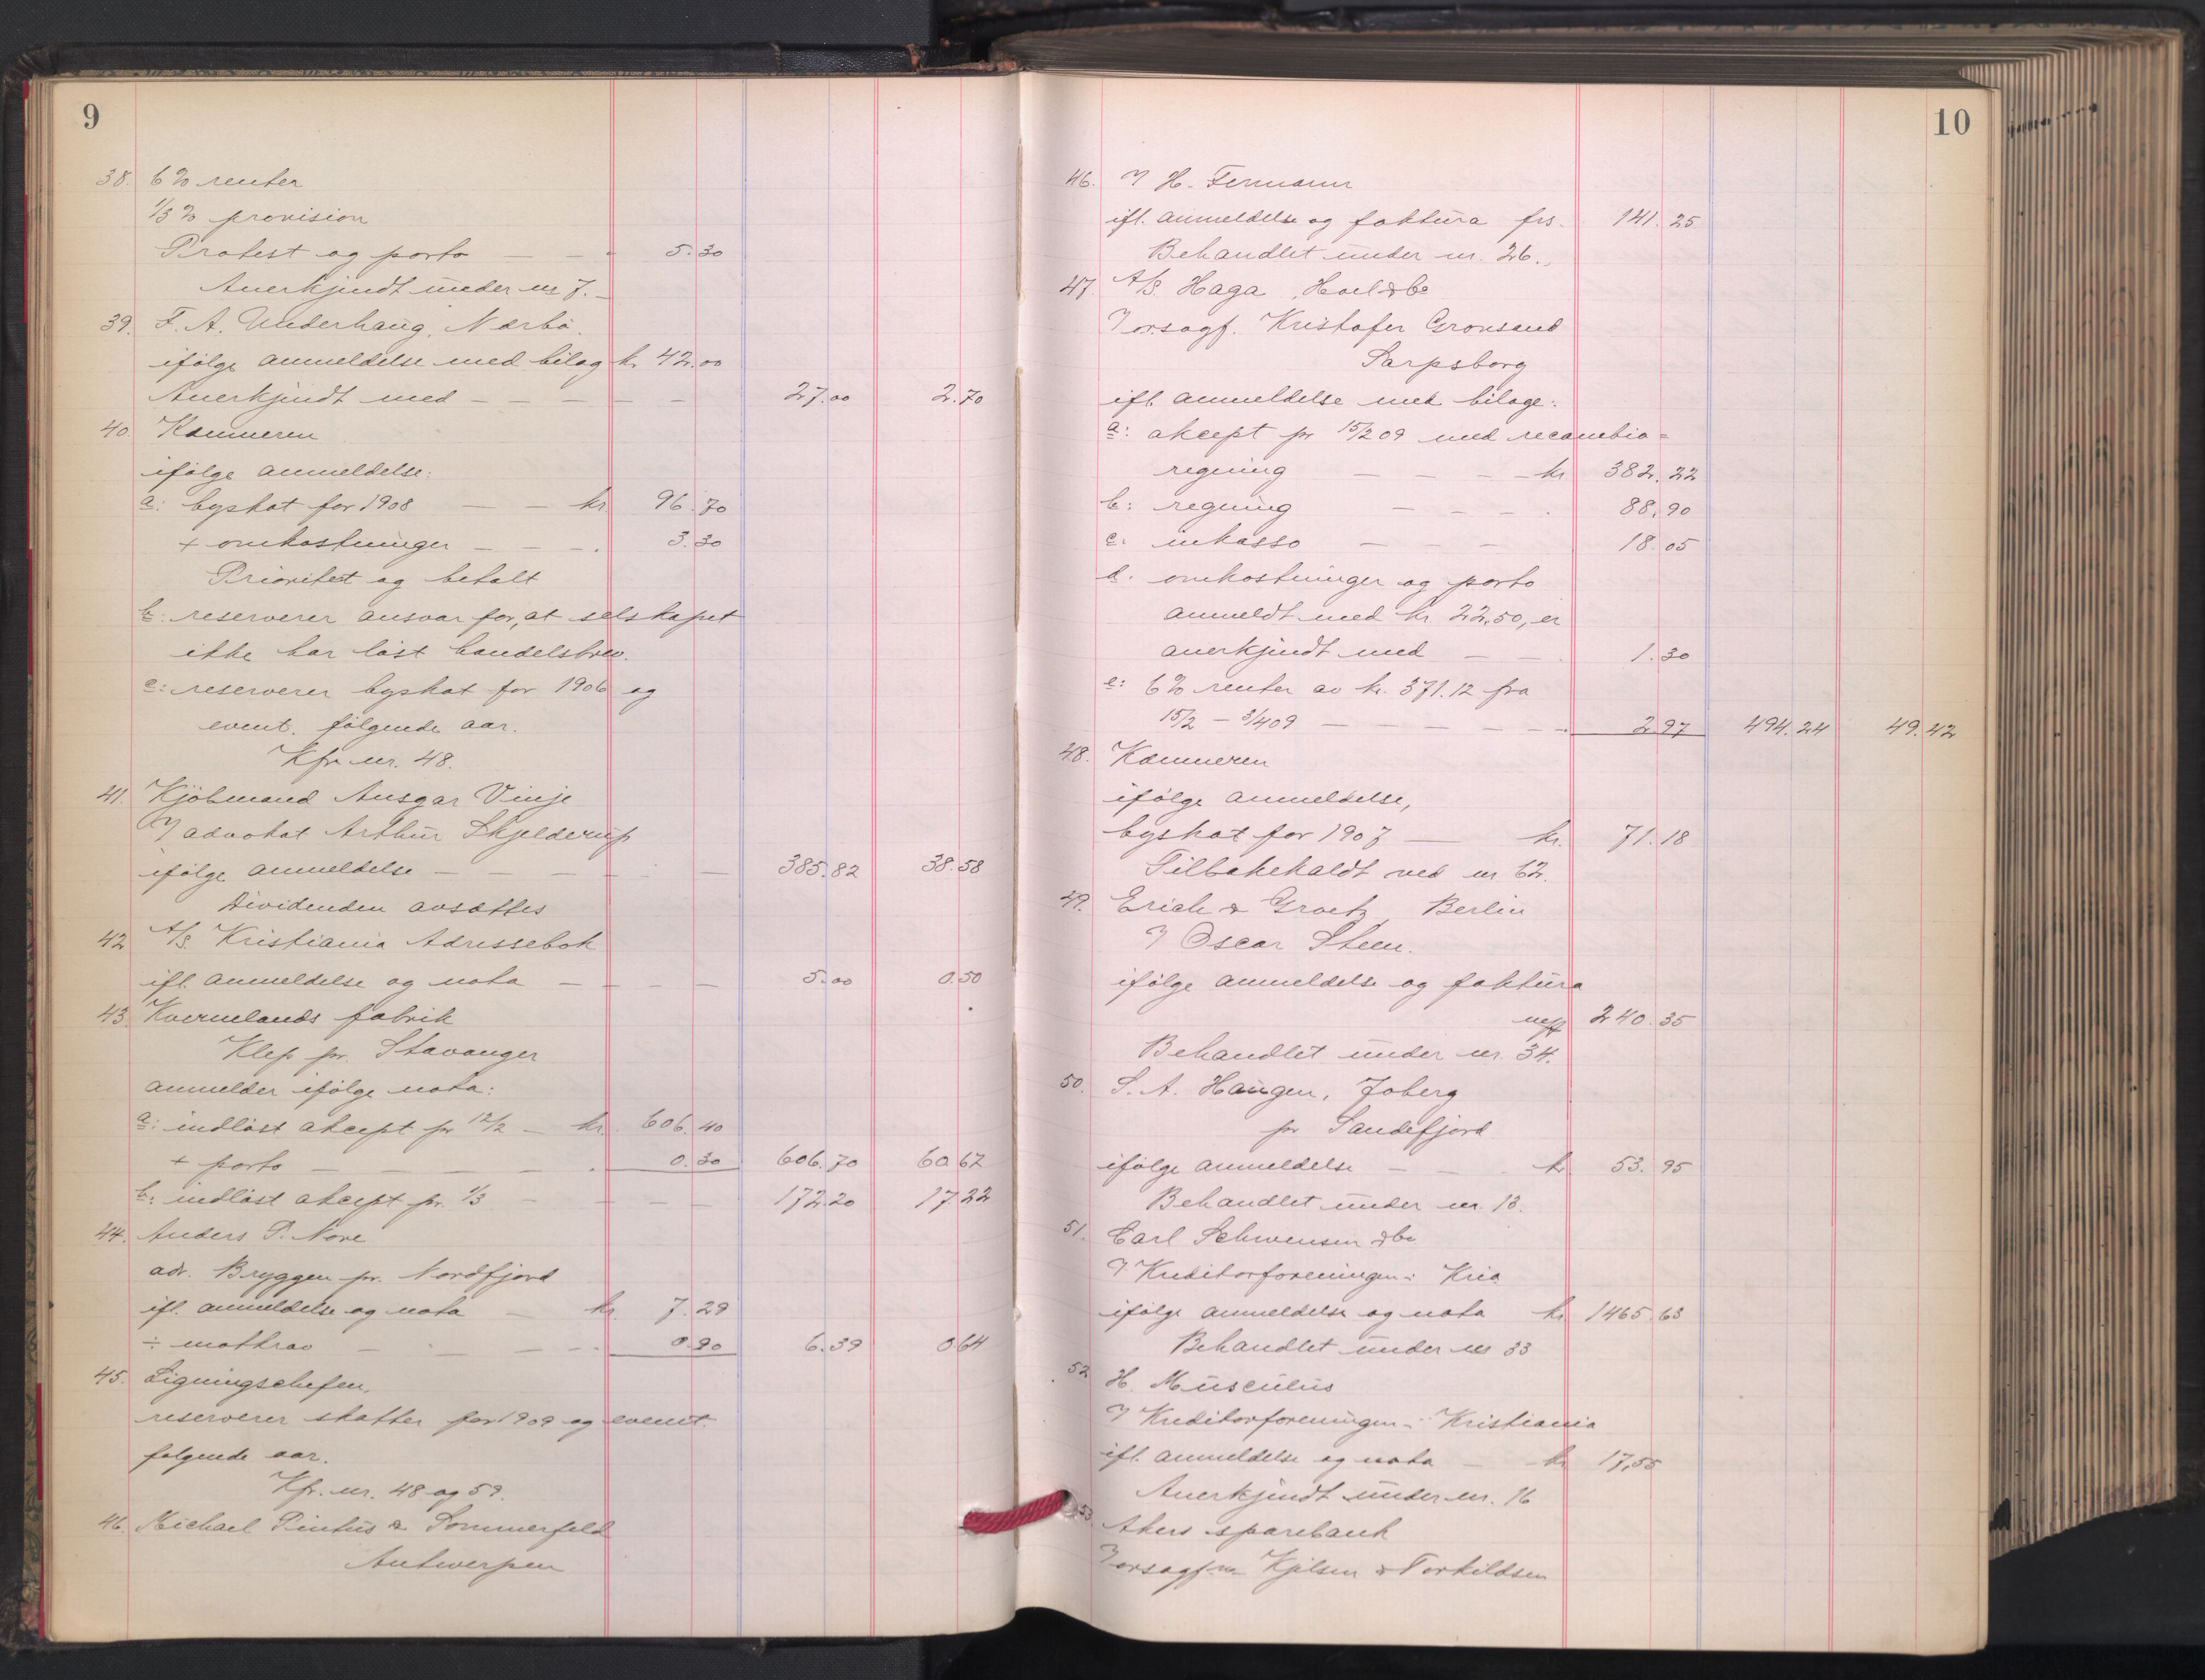 9
38. 6% renter
1/3% provision
Protest og porto — — - 5.30
Anerkjendt under nr 7.
39. F. A. Underhaug, Nærbö.
ifölge anmeldelse med bilag kr. 42.00
Anerkjendt med — — — — — 27.00 2.70
40. Kæmneren
ifölge anmeldelse:
a: byskat for 1908 — — kr. 96.70
+ omkostninger — — — . 3.30
Prioritet og betalt
b: reserverer ansvar for, at selskapet
ikke har löst handelsbrev.
c: reserverer byskat for 1906 og
event. følgende aar.
Kfr. nr. 48.
41. Kjöbmand Ansgar Vinje
V advokat Arthur Skjelderup
ifölge anmeldelse — — — — — 385.82 38.58
Dividenden avsættes
42. A/S. Kristiania Adressebok
ifl. anmeldelse og nota — — — — 5.00 0.50
43. Kvernelands fabrik
Klep pr. Stavanger
anmelder ifölge nota:
a: indlöst aksept pr 12/2 — kr. 606.40
+ porto — — — — . 0.30 606.70 60.67
b: indlöst aksept pr. 1/3 — — — 172.20 17.22
44. Anders P. Nore
adr. Bryggen pr. Nordfjord
ifl. anmeldelse og nota — kr. 7.29
÷ motkrav — — — — 0.90 6.39 0.64
45. Ligningschefen.
reserverer skatter for 1909 og event.
følgende aar.
Kfr. nr. 48 og 59.
46. Michael Pintus & Sommerfeld
Antwerpen
10
46. V H. Fermann
ifl. anmeldelse og faktura frs. 141.25
Behandlet under nr. 26.
47. A/S. Haga, Hoel & Co
V orsagf. Kristofer Gronsand
Sarpsborg
ifl. anmeldelse med bilage:
a: aksept pr 15/2 09 med recambio=
regning — — — — kr 382.22
b: regning — — — . 88.90
c: inkasso — — — 18.05
d. omkostninger og porto
anmeldt med kr 22,50, er
anerkjendt med — — . 1.30
e: 6% renter av kr. 371.12 fra
15/2 — 3/4 09 — — — — — 2.97 494.24 49.42
48. Kæmneren
ifölge anmeldelse,
byskat for 1907 — kr. 71.18
Tilbakekaldt ved nr 62.
49. Erich & Graetz, Berlin
V Oscar Steen.
ifölge anmeldelse og faktura
240.35
Behandlet under nr. 34.
50. S. A. Haugen, Joberg
pr Sandefjord
ifölge anmeldelse — — kr 53.95
Behandlet under nr. 13.
51. Carl Schwensen & Co
V Kreditorforeningen i Kria
ifölge anmeldelse og nota kr 1465.63
Behandlet under nr 33
52. H. Musculus
V Kreditorforeningen i Kristiania
ifl. anmeldelse og nota — kr 17,55
Anerkjendt under nr. 16
53. Akers sparebank
V orsagf.ne Kjelsen & Torkildsen